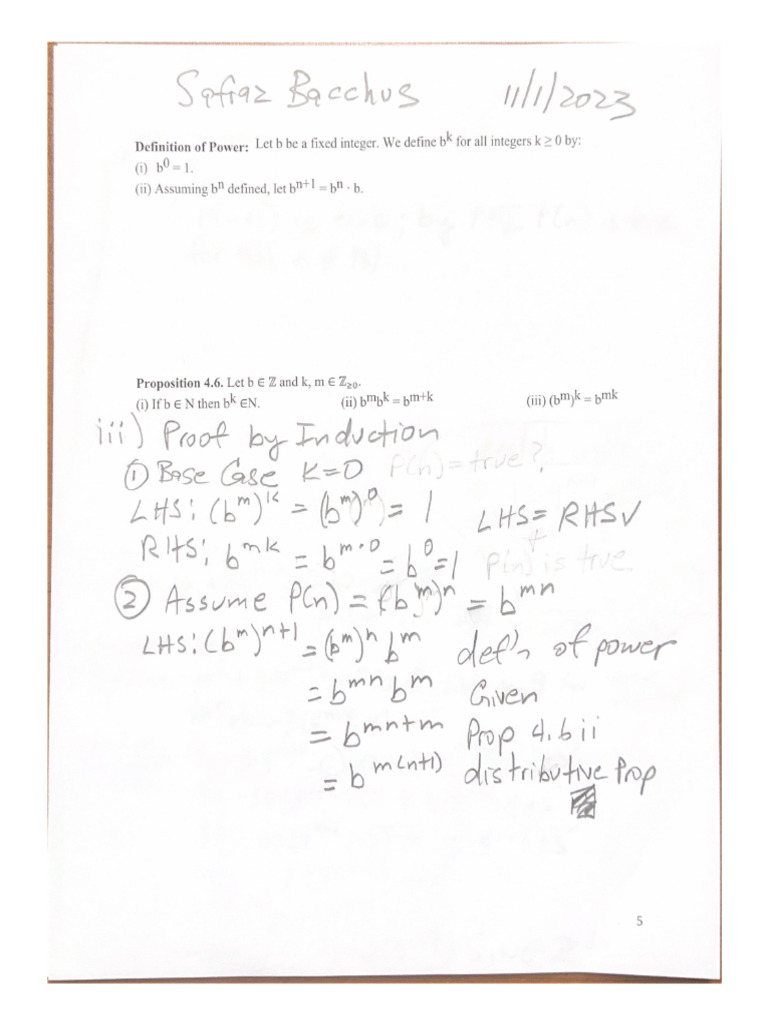 Safraz Bacchus 11/1/2023
Definition of Power: Let b be a fixed integer. We define b^k for all integers k ≥ 0 by:
(i) b^0 = 1.
(ii) Assuming b^n defined, let b^(n+1) = b^n · b.
Proposition 4.6. Let b ∈ ℤ and k, m ∈ ℤ≥0.
(i) If b ∈ N then b^k ∈N. (ii) b^m b^k = b^(m+k) (iii) (b^m)^k = b^(mk)
iii) Proof by Induction
① Base Case K=0 P(n)=true?
LHS: (b^m)^k = (b^m)^0 = 1 LHS = RHS✓
RHS: b^(mk) = b^(m·0) = b^0 = 1 P(n) is true
② Assume P(n) = (b^m)^n = b^(mn)
LHS: (b^m)^(n+1) = (b^m)^n b^m def'n of power
= b^(mn) b^m Given
= b^(mn+m) Prop 4.6 ii
= b^(m(n+1)) distributive Prop
5